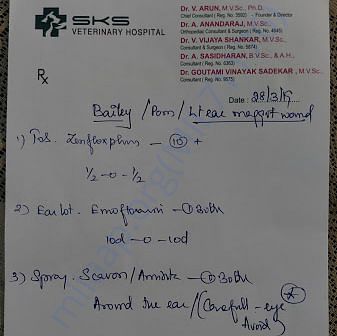 SKS
VETERINARY HOSPITAL
Dr. V. ARUN, M.V.Sc., Ph.D.
Chief Consultant ( Reg. No. 3592) - Founder & Director
Dr. A. ANANDARAJ, M.V.Sc.,
Orthopediac Consultant & Surgeon ( Reg. No. 4945)
Dr. V. VIJAYA SHANKAR, M.V.Sc.,
Consultant & Surgeon ( Reg. No. 5874)
Dr. A. SASIDHARAN, B.V.Sc., & A.H.,
Consultant ( Reg. No. 6363)
Dr. GOUTAMI VINAYAK SADEKAR, M.V.Sc.,
Consultant ( Reg. No. 9575)
Rx
Date : 28/3/19
Bailey / Pom / Lt ear maggot wound
1) Tab. — 10 +
1/2 - 0 - 1/2
2) Ear — 1 Bottle
10d - 0 - 10d
3) Spray. Scavon / — 1 Bottle
Around the ear // (Careful - eye
Avoid)